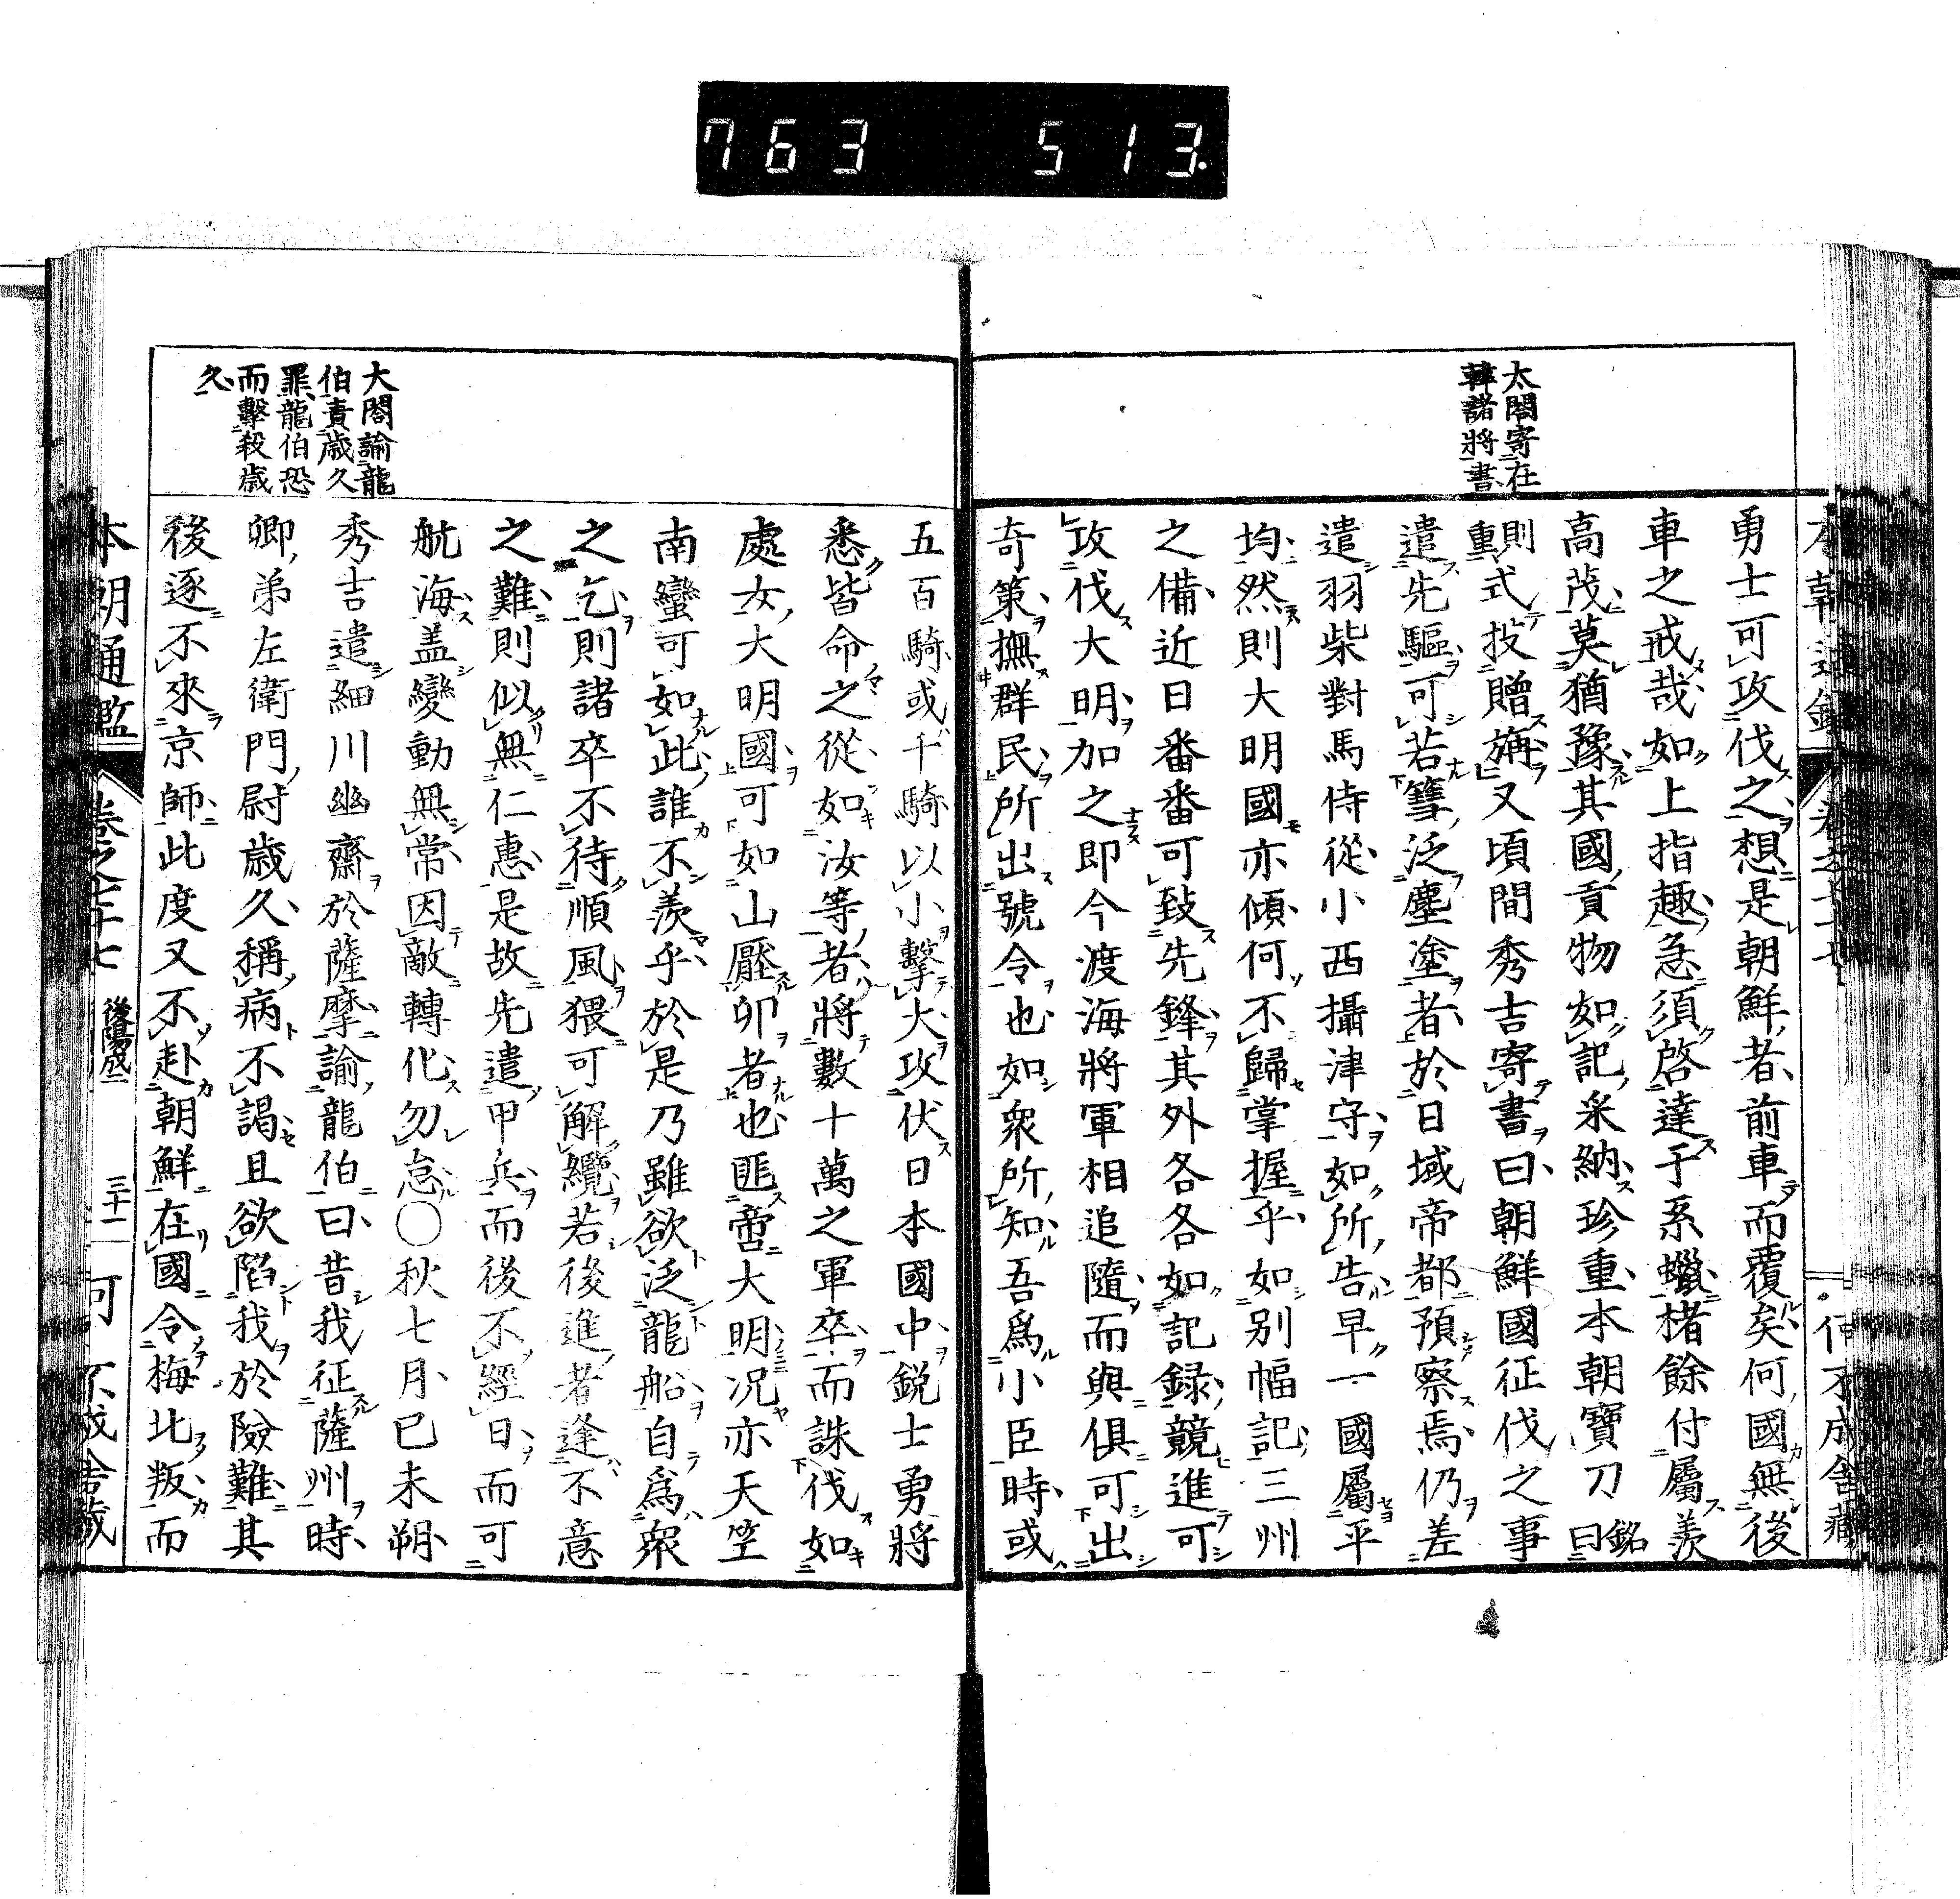 763 513.
太閤寄在
韓諸將書
勇士可攻伐之想是朝鮮者前車而覆矣何國無後
車之戒哉如上指趣急須啓達于系蠟楮餘付屬羨
高茂莫猶豫其國貢物如記采納珍重本朝寶刀銘曰
則重式投贈旃又頃間秀吉寄書曰朝鮮國征伐之事
遣先驅可若篲泛塵塗者於日域帝都預察焉仍差
遣羽柴對馬侍從小西攝津守如所告早一國屬平
均然則大明國亦傾何不歸掌握乎如别幅記三州
之備近日番番可致先鋒其外各各如記録競進可
攻伐大明加之即今渡海將軍相追隨而與俱可出
奇策撫群民所出號令也如衆所知吾爲小臣時或
大閤諭龍
伯責歳久
罪龍伯恐
而擊殺歳
久
五百騎或千騎以小擊大攻伏日本國中鋭士勇將
悉皆命之從如汝等者將數十萬之軍卒而誅伐如
處女大明國可如山壓卵者也匪啻大明况亦天竺
南蠻可如此誰不羨乎於是乃雖欲泛龍船自爲衆
之乞則諸卒不待順風猥可解纜若後進者逢不意
之難則似無仁惠是故先遣甲兵而後不經日而可
航海盖變動無常因敵轉化勿怠〇秋七月已未朔
秀吉遣細川幽齋於薩摩諭龍伯曰昔我征薩州時
卿弟左衛門尉歳久稱病不謁且欲陷我於險難其
後逐不來京師此度又不赴朝鮮在國令梅北叛而
本朝通鑑 卷之七十七 後陽成二 三十一